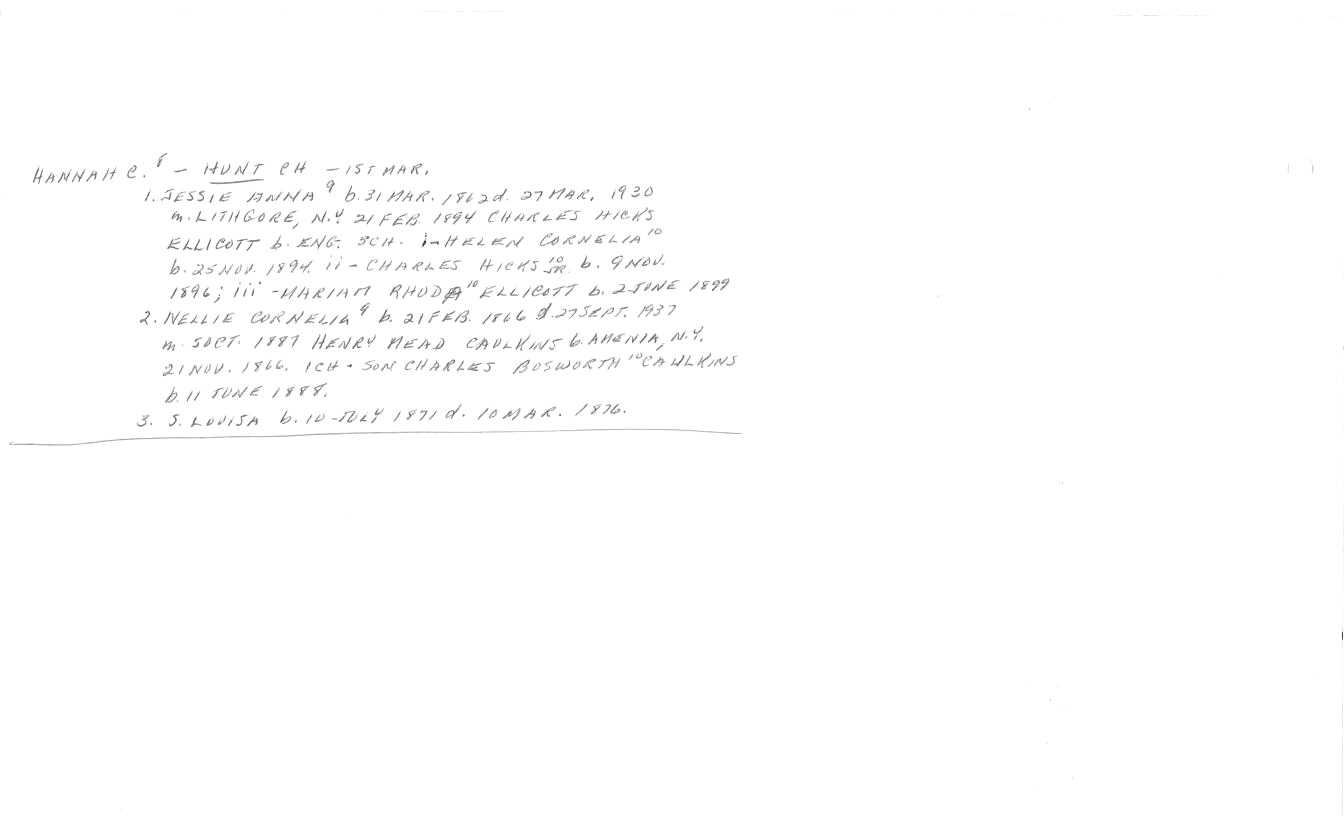 HANNAH C.⁸ – HUNT CH – 1ST MAR.
1. JESSIE ANNA⁹ b. 31 MAR. 1862 d. 27 MAR, 1930
m. LITHGORE, N.Y. 21 FEB. 1894 CHARLES HICKS
ELLICOTT b. ENG. 3CH. i – HELEN CORNELIA¹⁰
b. 25 NOV. 1894. ii – CHARLES HICKS¹⁰ JR. b. 9 NOV.
1896; iii – MARIAM RHODA¹⁰ ELLICOTT b. 2 JUNE 1899
2. NELLIE CORNELIA⁹ b. 21 FEB. 1866 d. 27 SEPT. 1937
m. 5 OCT. 1887 HENRY MEAD CAULKINS b. AMENIA, N.Y.
21 NOV. 1866. 1 CH. SON CHARLES BOSWORTH¹⁰ CAWLKINS
b. 11 JUNE 1888.
3. S. LOUISA b. 10 JULY 1871 d. 10 MAR. 1876.